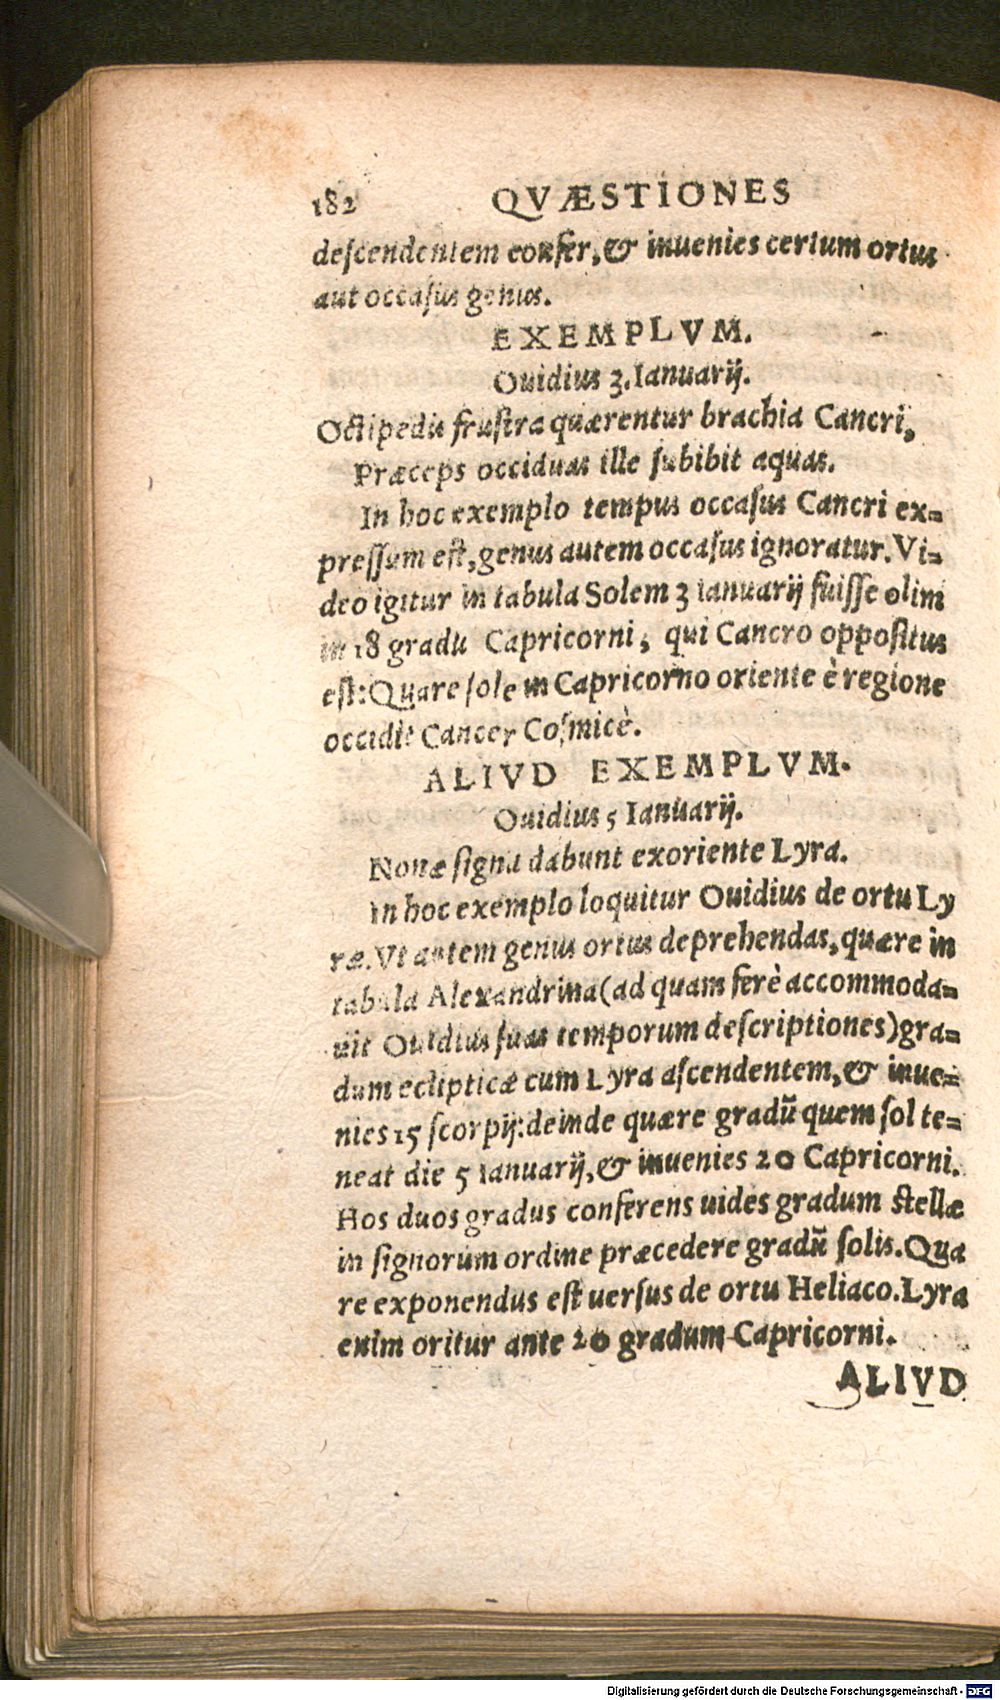 182 QVÆSTIONES
deſcendentem confer, & inuenies certum ortus
aut occaſus genus.
EXEMPLVM.
Ouidius 3. Ianuarij.
Octipedis fruſtra quærentur brachia Cancri,
Præceps occiduas ille ſubibit aquas.
In hoc exemplo tempus occaſus Cancri ex=
preſſum eſt, genus autem occaſus ignoratur. Vi=
deo igitur in tabula Solem 3 Ianuarij fuiſſe olim
in 18 gradu Capricorni, qui Cancro oppoſitus
eſt: Quare ſole in Capricorno oriente è regione
occidit Cancer Coſmicè.
ALIVD EXEMPLVM.
Ouidius 5 Ianuarij.
Nonæ ſigna dabunt exoriente Lyra.
In hoc exemplo loquitur Ouidius de ortu Ly
ræ. Vt autem genus ortus deprehendas, quære in
tabula Alexandrina (ad quam ferè accommoda=
uit Ouidius ſuas temporum deſcriptiones) gra=
dum eclipticæ cum Lyra aſcendentem, & inue=
nies 15 ſcorpij: deinde quære gradū quem ſol te=
neat die 5 Ianuarij, & inuenies 20 Capricorni.
Hos duos gradus conferens uides gradum ſtellæ
in ſignorum ordine præcedere gradū ſolis. Qua
re exponendus eſt uerſus de ortu Heliaco. Lyra
enim oritur ante 20 gradum Capricorni.
ALIVD
Digitalisierung gefördert durch die Deutsche Forschungsgemeinschaft - DFG